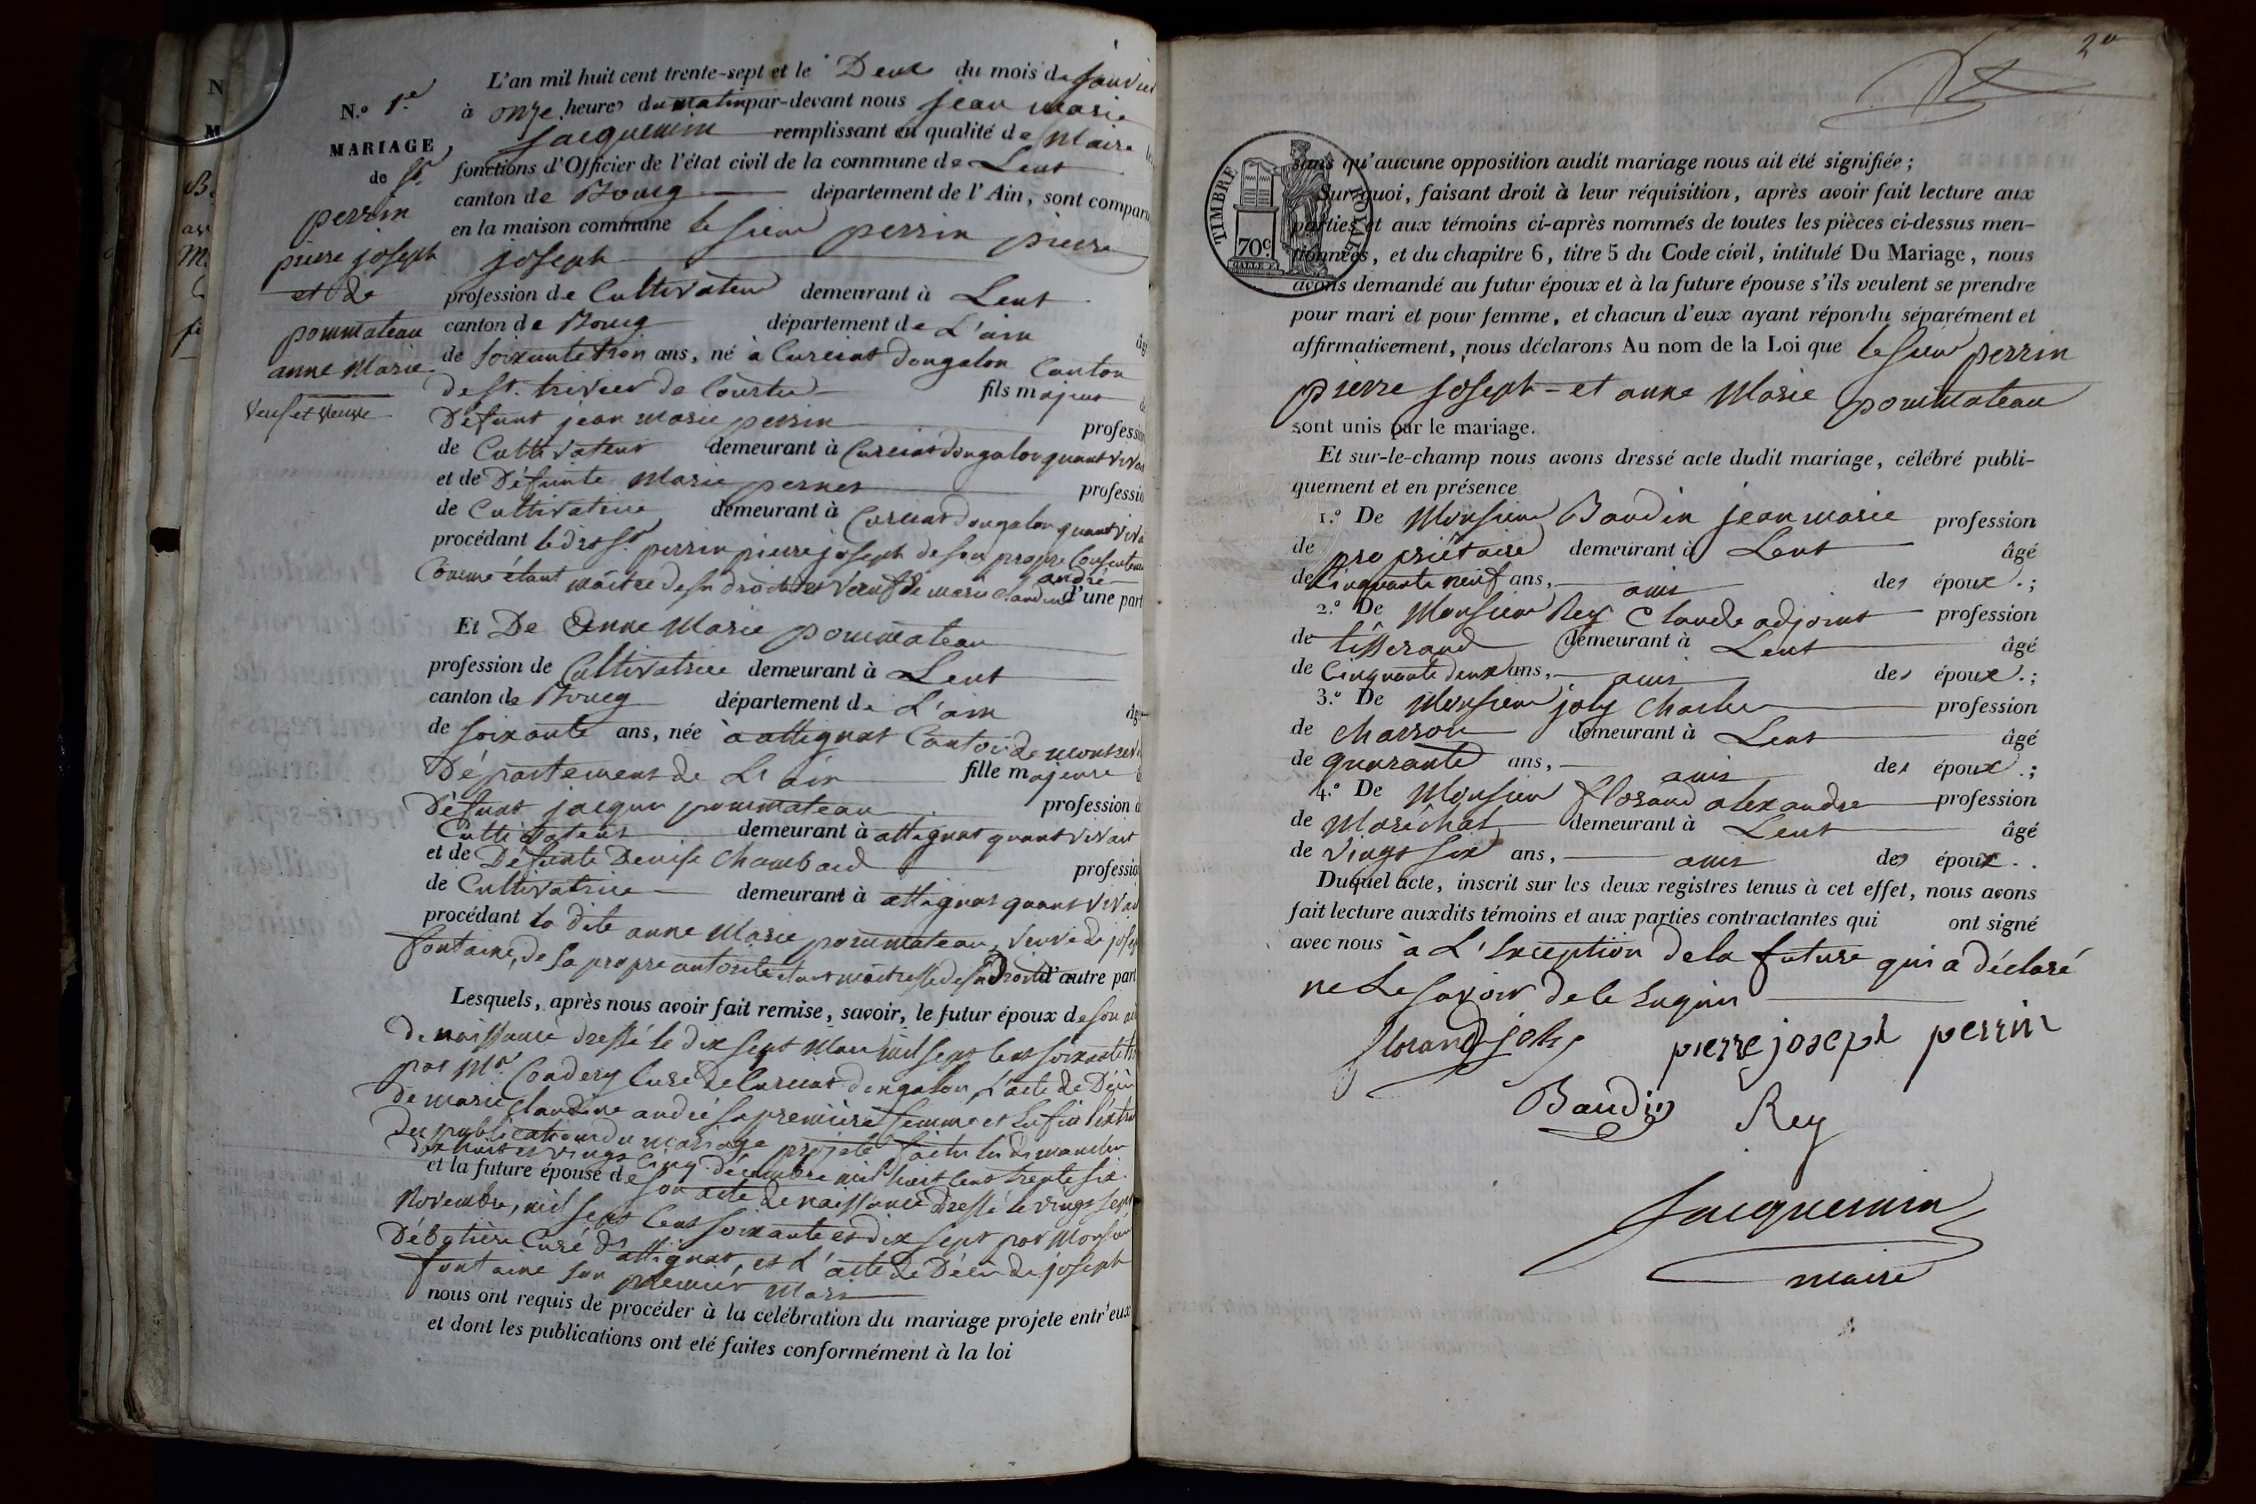 N.º 1.er
MARIAGE
de Sr.
perrin
pierre joseph
et de
pommateau
anne Marie
Veuf et Veuve
L'an mil huit cent trente-sept et le Deux du mois de Janvier
à onze heures du matin par-devant nous jean marie
Jacquemin remplissant en qualité de Maire
fonctions d'Officier de l'état civil de la commune de Lent
canton de Bourg département de l'Ain, sont comparu
en la maison commune le sieur perrin pierre
joseph
profession de Cultivateur demeurant à Lent
canton de Bourg département de L'ain
de soixante trois ans, né à Curciat dongalon Canton
de St. trivier de Courtes fils majeur
Défunt jean marie perrin profession
de Cultivateur demeurant à Curciat dongalon quant vivai
et de Défunte Marie pernet professio
de Cultivatrice demeurant à Curciat dongalon quant viva
procédant le dit Sr. perrin pierre joseph de son propre Consentem
Comme étant maître de ses droits et Veuf de marie claudine andré d'une part
Et De Anne Marie pommateau
profession de Cultivatrice demeurant à Lent
canton de Bourg département de L'ain âgé
de soixante ans, née à attignat Canton de montrev
Département de L'ain fille majeure
Défunt jacques pommateau profession d
Cultivateur demeurant à attignat quant vivait
et de Défunte Denise Chambard professio
de Cultivatrice demeurant à attignat quant vivai
procédant la dite anne Marie pommateau, veuve de josep
fontaine, de sa propre autorité étant maîtresse de ses Droits d'autre part
Lesquels, après nous avoir fait remise, savoir, le futur époux de son
De naissance dressé le dix sept Mars mil sept Cent soixante
par Mr. Condery Curé de Curciat dongalon, L'acte de Décès
de marie Claudine andré sa première femme et Enfin l'extrai
Des publications du mariage projeté faites les dimanches
dix huit et vingt Cinq décembre mil huit Cent trente six
et la future épouse de son acte de naissance dressé le vingt sept
Novembre, mil sept Cent soixante et dix sept par Monsieur
Débatière Curé d'attignat, et L'acte de Décès de joseph
fontaine son premier Mari
nous ont requis de procéder à la célébration du mariage projeté entr'eux
et dont les publications ont été faites conformément à la loi
2e
TIMBRE ROYAL
70 c.
sans qu'aucune opposition audit mariage nous ait été signifiée ;
Sur quoi, faisant droit à leur réquisition, après avoir fait lecture aux
parties et aux témoins ci-après nommés de toutes les pièces ci-dessus men-
tionnées, et du chapitre 6, titre 5 du Code civil, intitulé Du Mariage, nous
avons demandé au futur époux et à la future épouse s'ils veulent se prendre
pour mari et pour femme, et chacun d'eux ayant répondu séparément et
affirmativement, nous déclarons Au nom de la Loi que le sieur perrin
pierre joseph - et anne Marie pommateau
sont unis par le mariage.
Et sur-le-champ nous avons dressé acte dudit mariage, célébré publi-
quement et en présence
1.º De Monsieur Baudin jean marie profession
de propriétaire demeurant à Lent âgé
de Cinquante neuf ans, amis des époux. ;
2.º De Monsieur Rey Claude adjoint profession
de tisserand demeurant à Lent âgé
de Cinquante deux ans, amis des époux. ;
3.º De Monsieur joly Charles profession
de charron demeurant à Lent âgé
de quarante ans, amis des époux. ;
4.º De Monsieur florand alexandre profession
de Maréchal demeurant à Lent âgé
de vingt six ans, amis des époux. .
Duquel acte, inscrit sur les deux registres tenus à cet effet, nous avons
fait lecture auxdits témoins et aux parties contractantes qui ont signé
avec nous à L'Exception de la future qui a déclaré
ne Le savoir de le Enquis
florand joly pierre joseph perrin
Baudin Rey
Jacquemin
maire